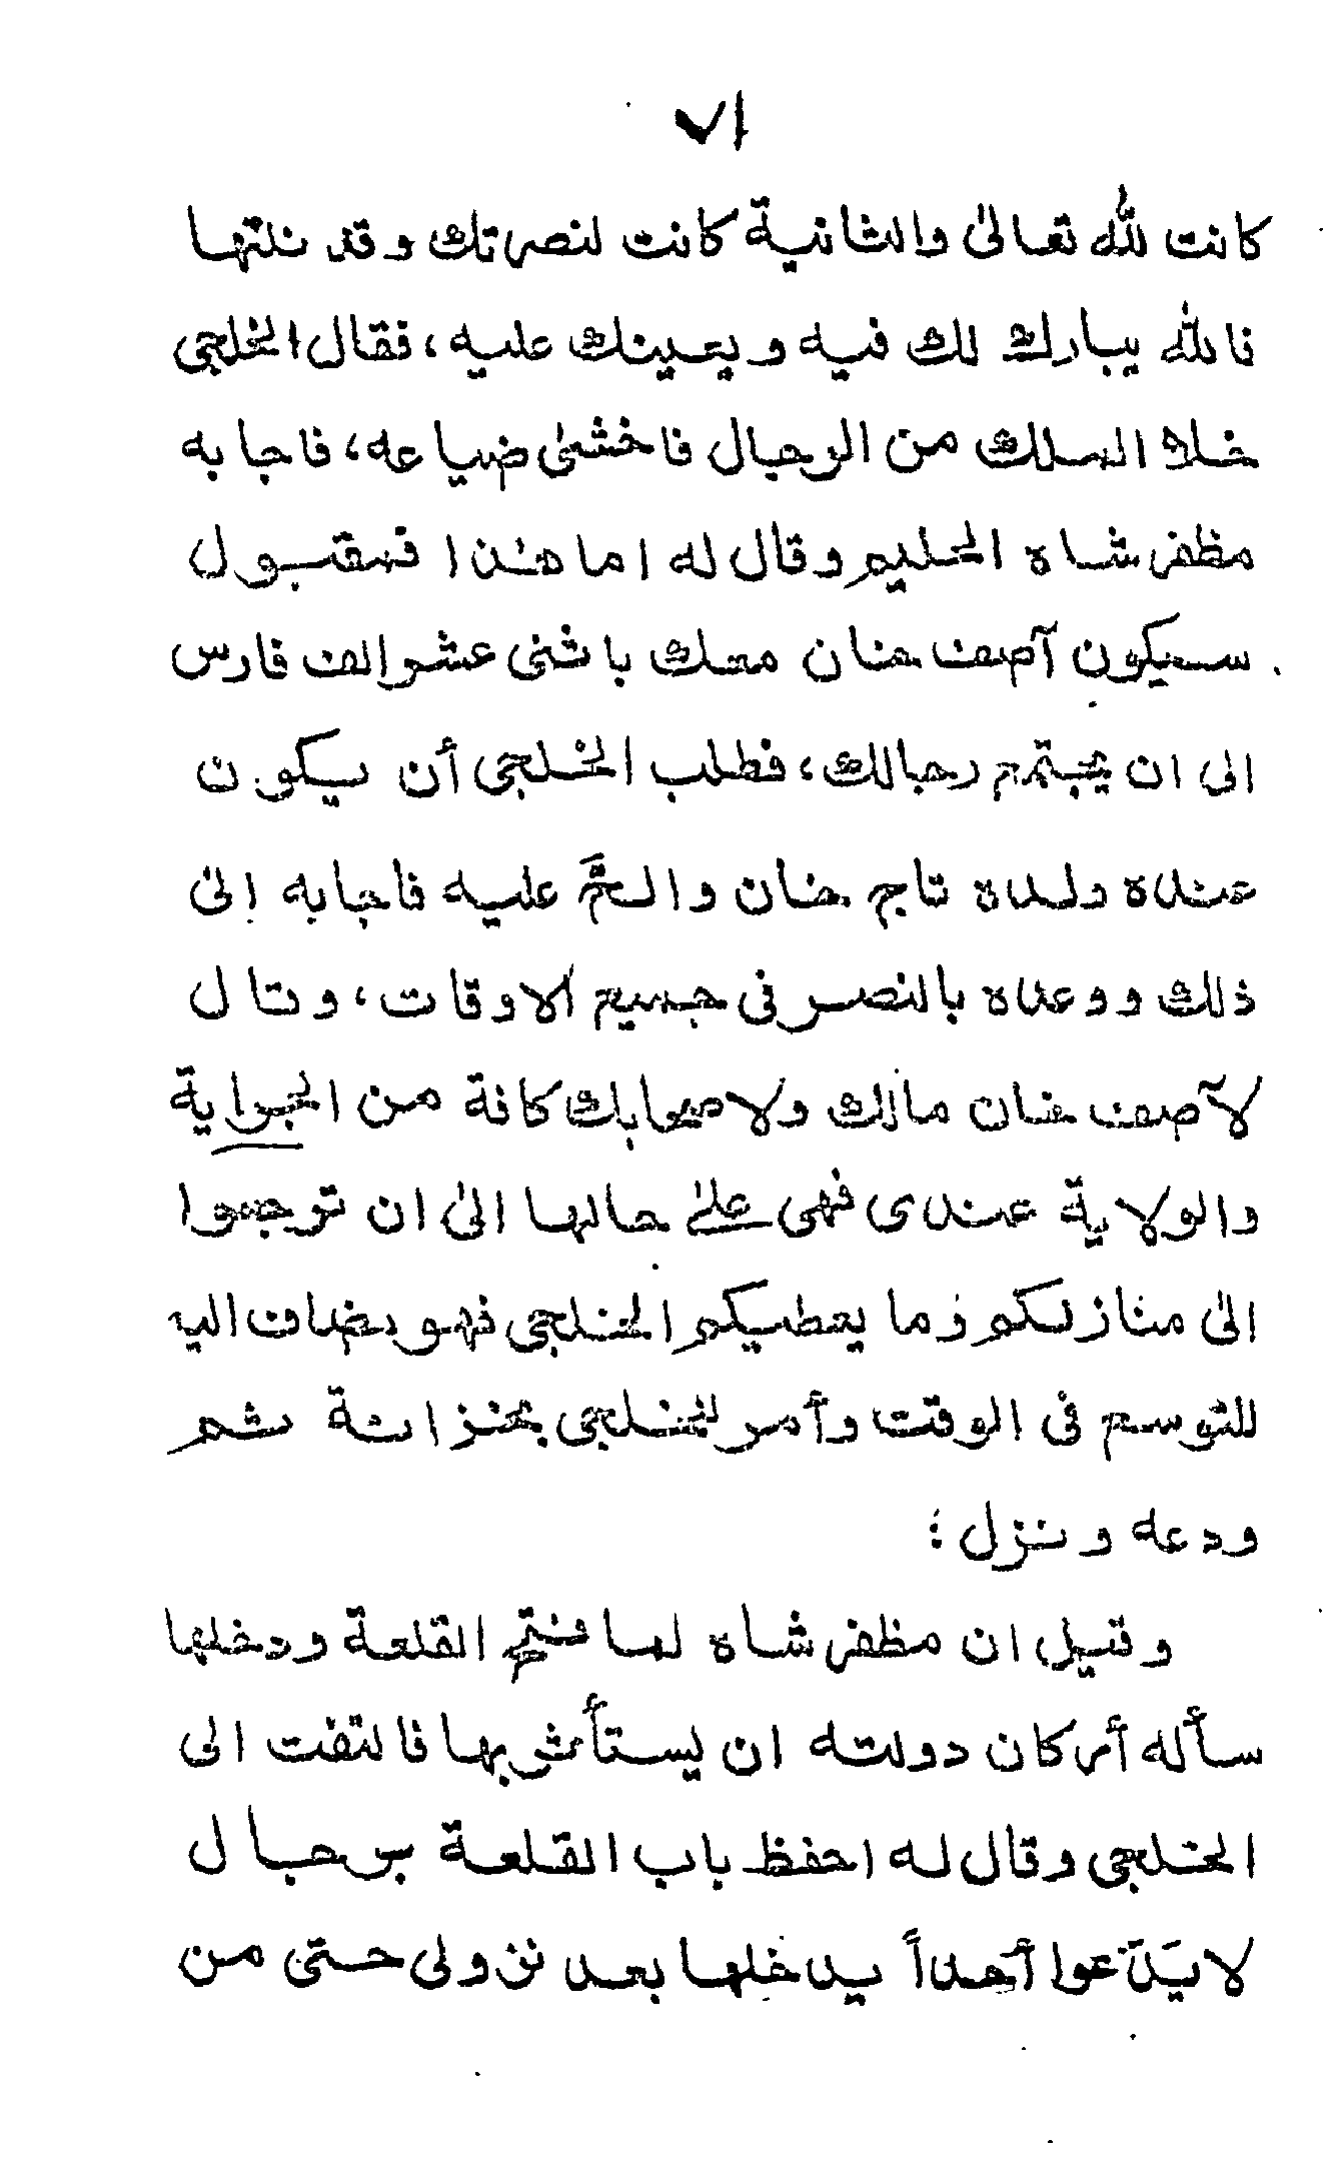 ٧١
كانت لله تعالىٰ والثانية كانت لنصرتك وقد نلتها
فالله يبارك لك فيه ويعينك عليه، فقال الخلجى
خلاه السلك من الرجال فاخشىٰ ضياعه، فاجابه
مظفر شاه الحليم وقال له اما هذا فمقبول
سيكون آصف خان معك باثنى عشر الف فارس
الى ان يجتمع رجالك، فطلب الخلجى أن يكون
عنده ولده تاج خان والحَّ عليه فاجابه إلىٰ
ذلك ووعده بالنصر فى جميع الاوقات، وقال
لآصف خان مالك ولاصحابك كافة من الجراية
والولاية عندى فهى علىٰ حالها الىٰ ان ترجعوا
الىٰ منازلكم وما يعطيكم الخلجى فهو يضاف اليه
للتوسع فى الوقت وأمر للخلجى بخزانة ثم
ودعه ونزل؛
وقيل ان مظفر شاه لما فتح القلعة ودخلها
سأله أركان دولته ان يستأثر بها فالتفت الى
الخلجى وقال له احفظ باب القلعة برجال
لا يَدَعوا أحداً يدخلها بعد نزولى حتى من